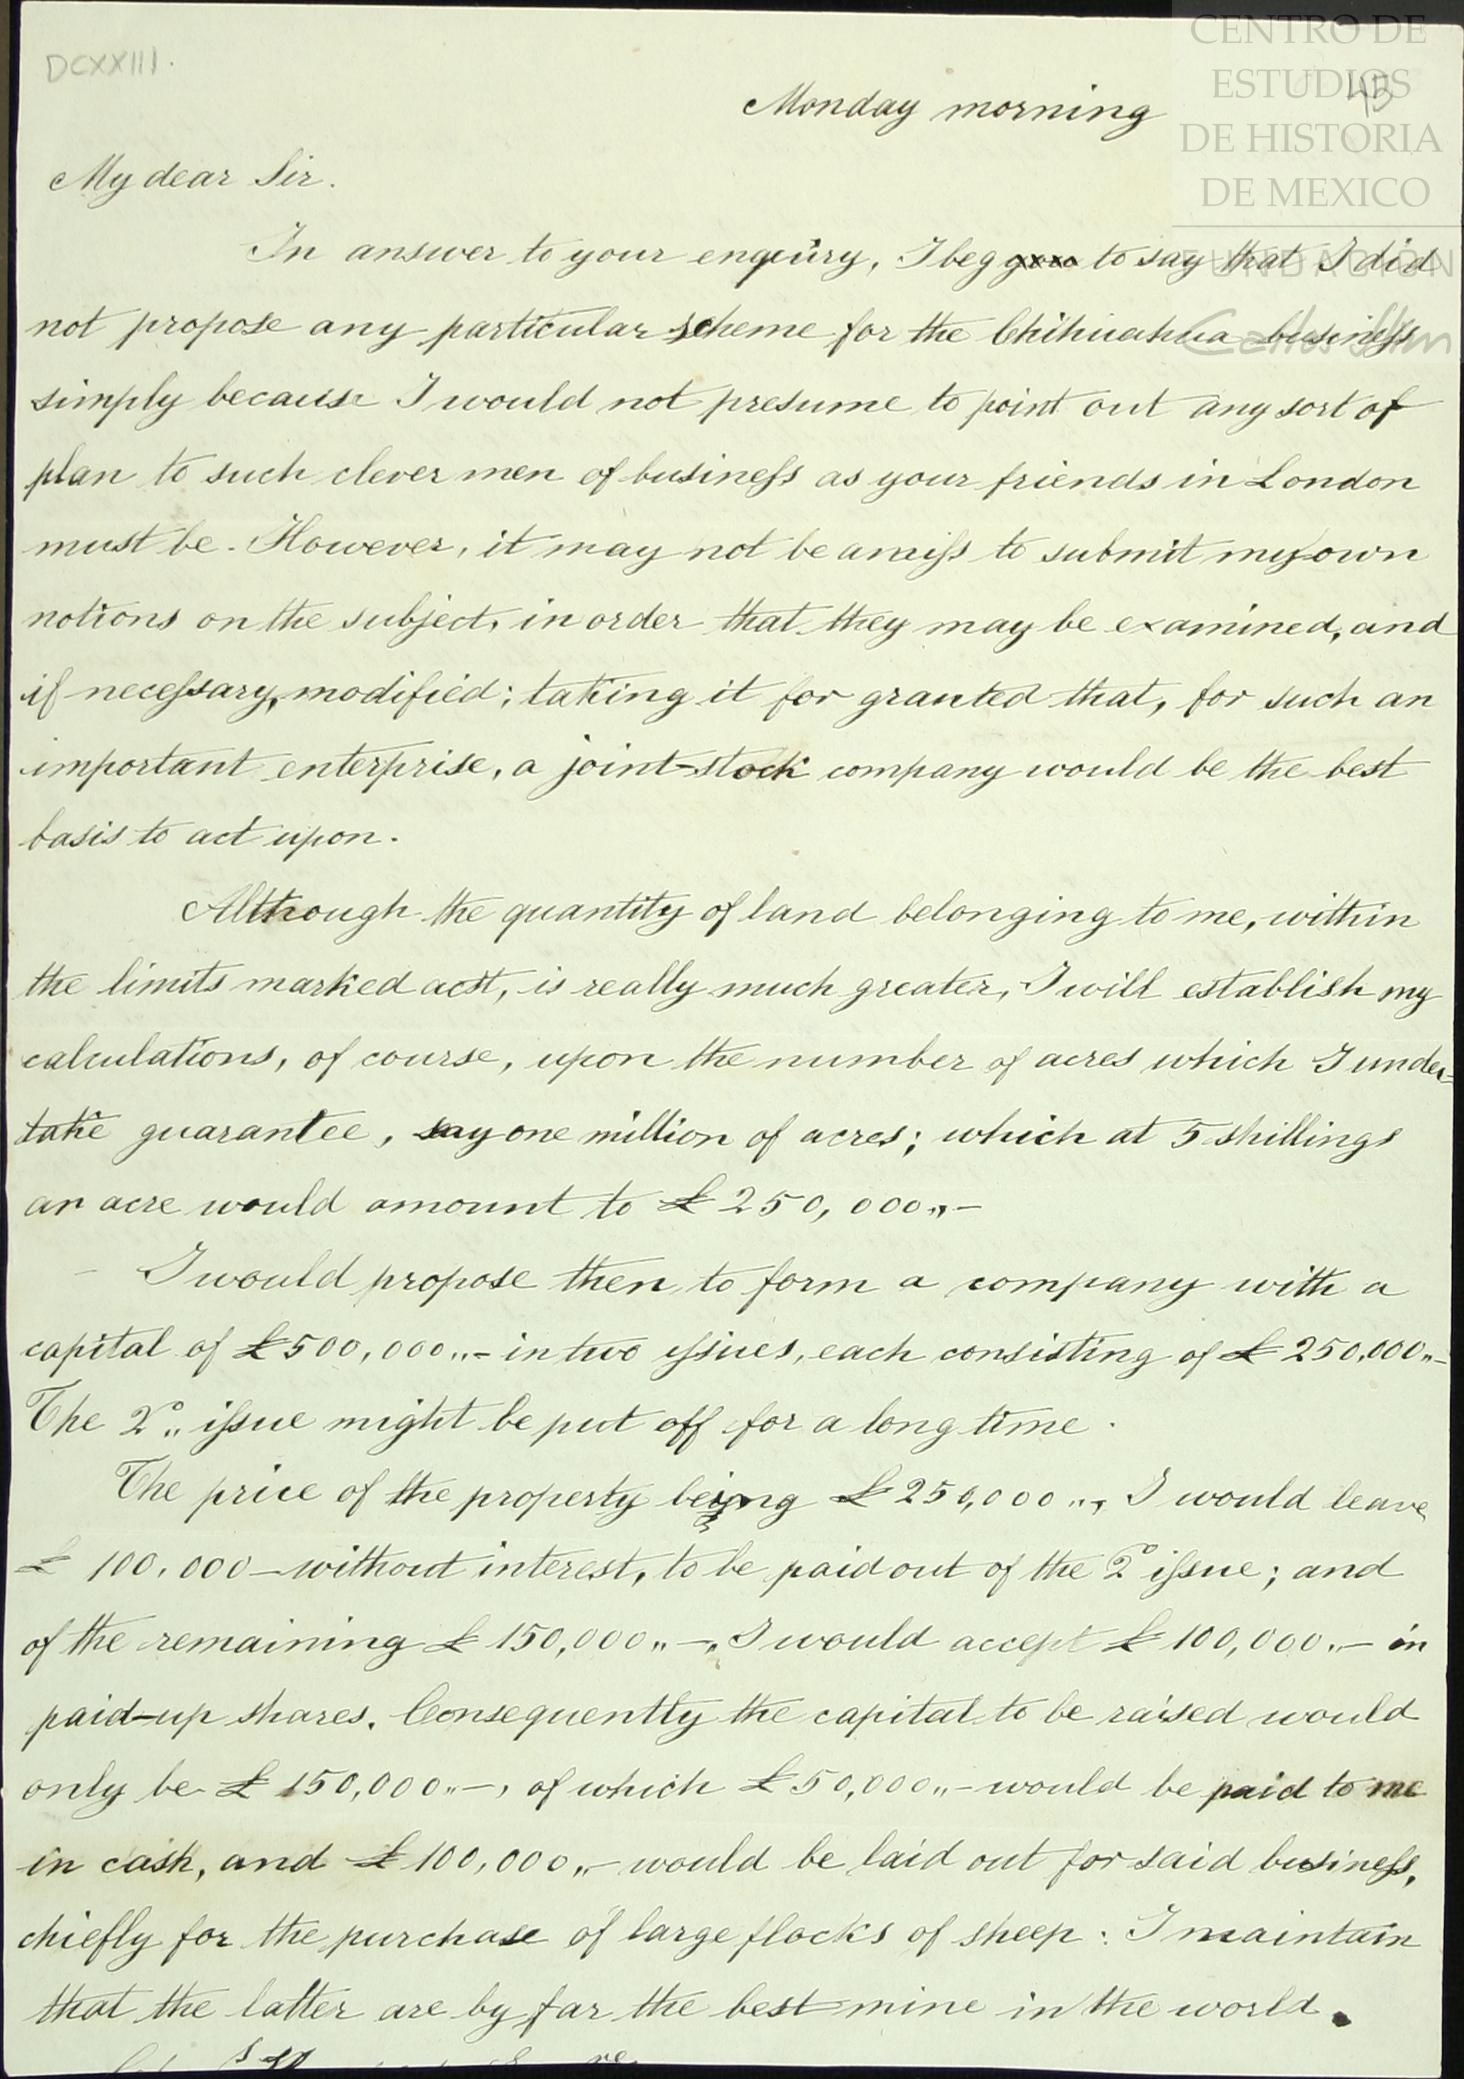 DCXXIII.
45
CENTRO DE
ESTUDIOS
DE HISTORIA
DE MEXICO
FUNDACIÓN
Carlos Slim
Monday morning
My dear Sir.
In answer to your enquiry, I beg to say that I did
not propose any particular scheme for the Chihuahua business
simply because I would not presume to point out any sort of
plan to such clever men of business as your friends in London
must be. However, it may not be amiss to submit my own
notions on the subject, in order that they may be examined, and
if necessary, modified; taking it for granted that, for such an
important enterprise, a joint-stock company would be the best
basis to act upon.
Although the quantity of land belonging to me, within
the limits marked out, is really much greater, I will establish my
calculations, of course, upon the number of acres which I under=
take guarantee, say one million of acres; which at 5 shillings
an acre would amount to £ 250,000,,-
- I would propose then to form a company with a
capital of £500,000,,- in two issues, each consisting of £ 250,000,,-
The 2º,, issue might be put off for a long time.
The price of the property being £250,000,,, I would leave
£ 100,000 - without interest, to be paid out of the 2º issue; and
of the remaining £ 150,000,,-, I would accept £ 100,000,,- in
paid-up shares. Consequently the capital to be raised would
only be £ 150,000,,-, of which £50,000,,- would be paid to me
in cash, and £100,000,,- would be laid out for said business,
chiefly for the purchase of large flocks of sheep: I maintain
that the latter are by far the best mine in the world.